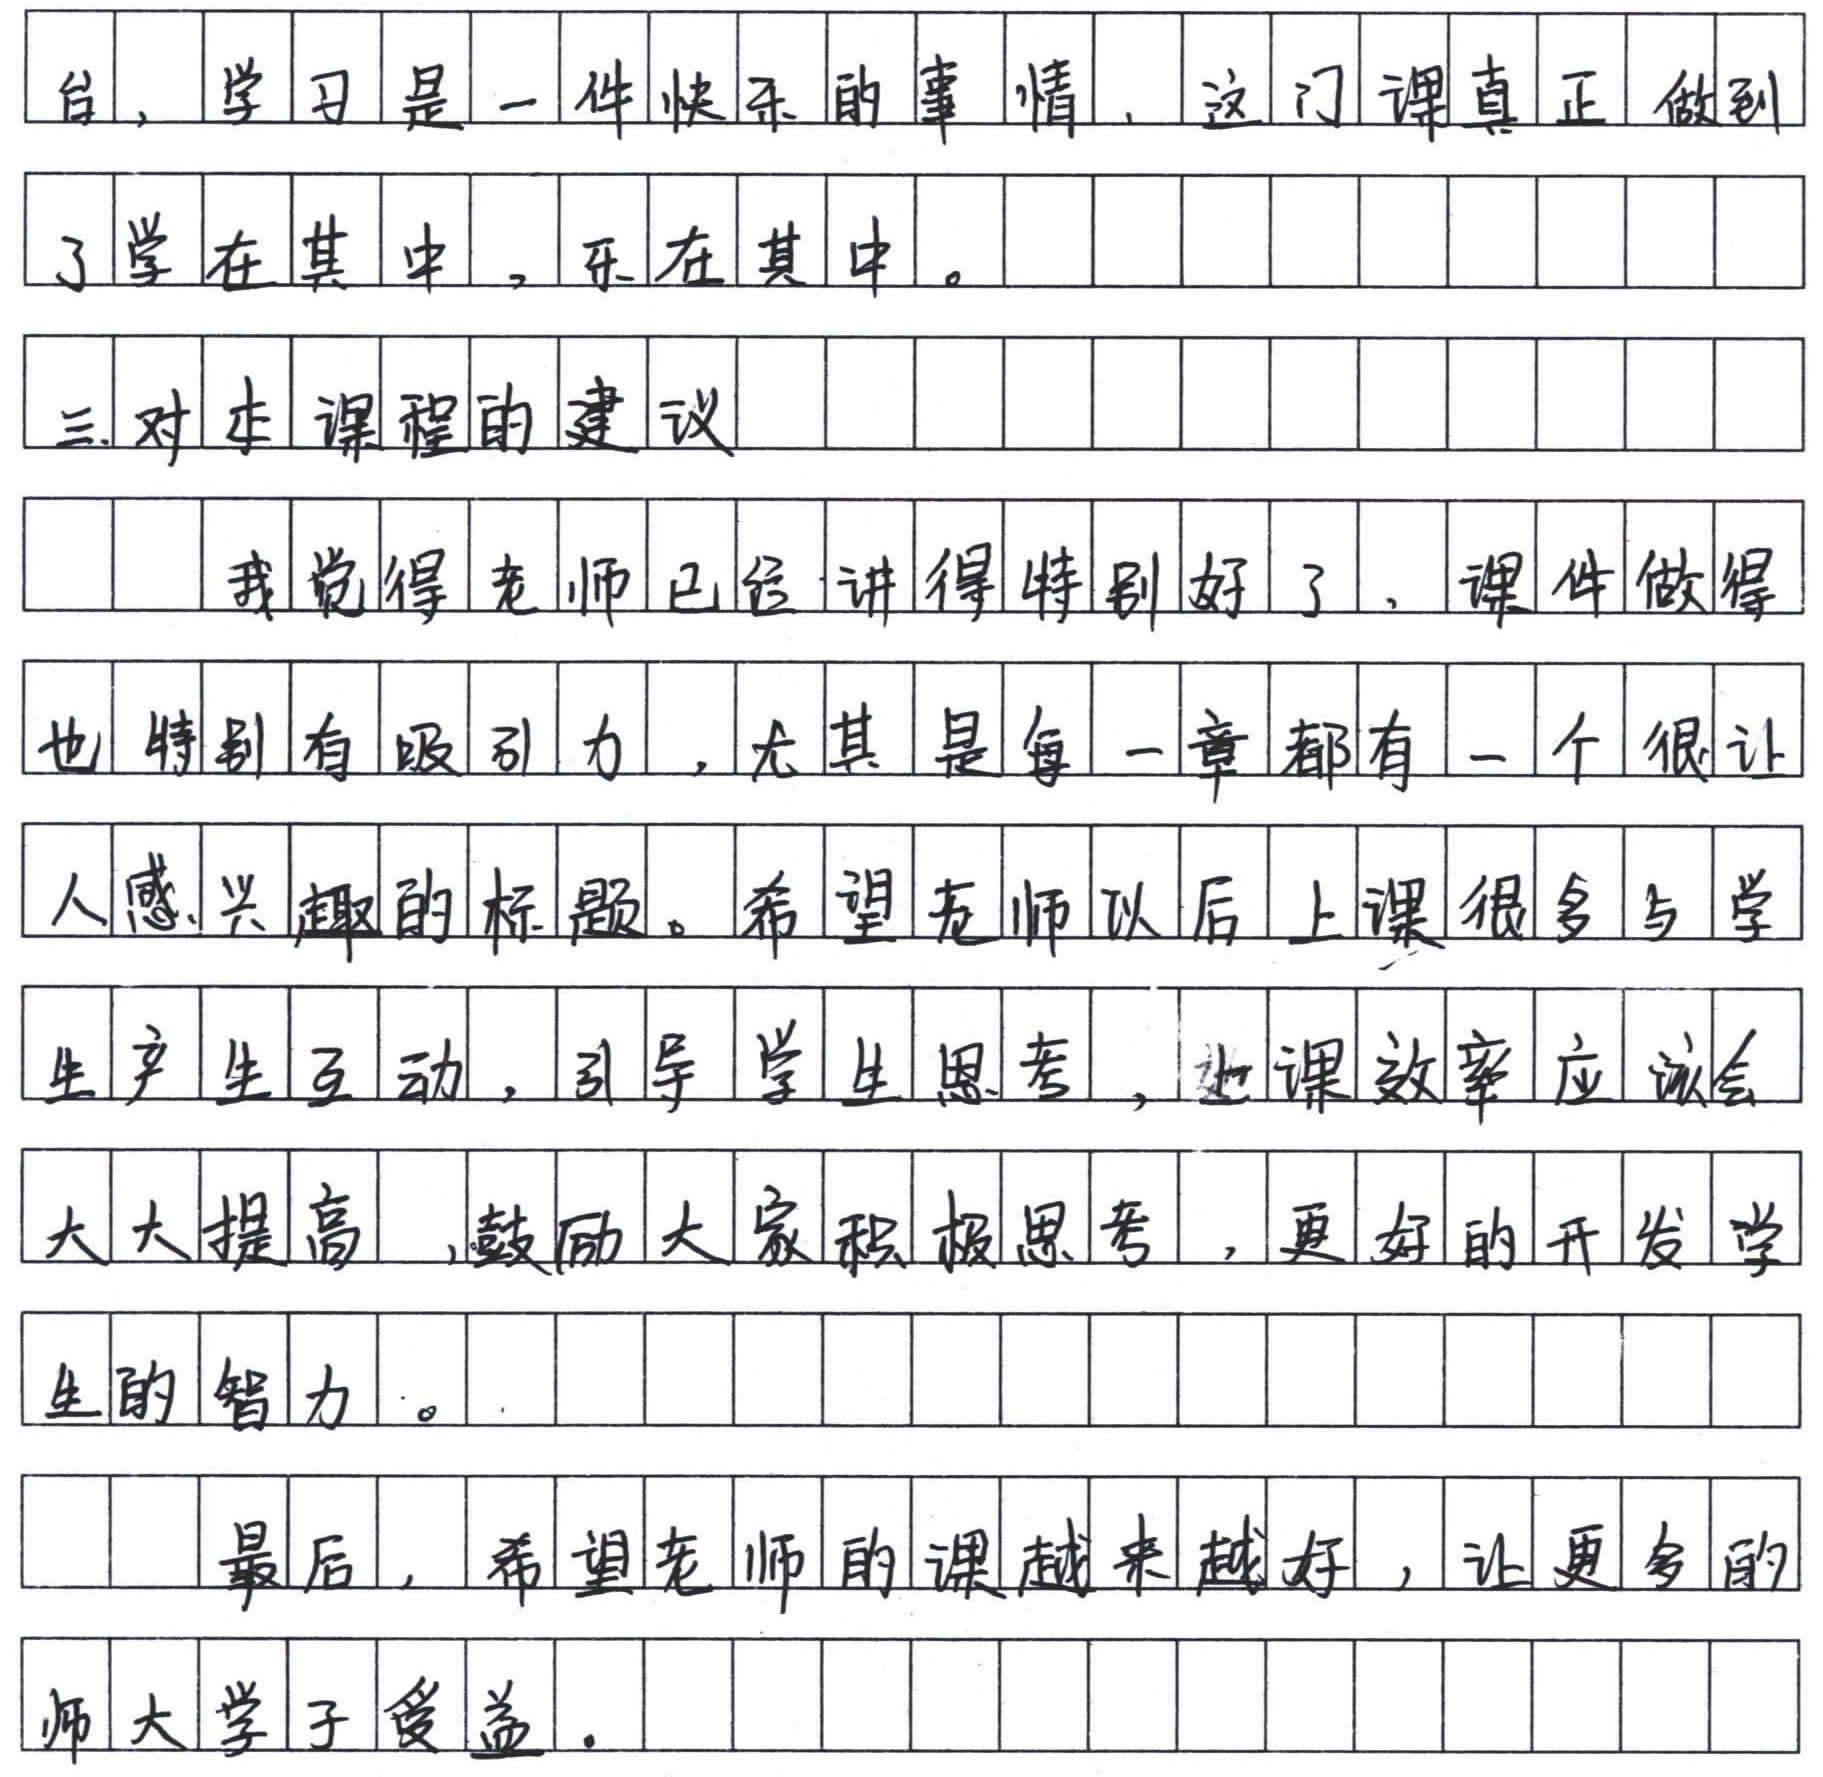 台，学习是一件快乐的事情，这门课真正做到
了学在其中，乐在其中。
三、对本课程的建议
我觉得老师已经讲得特别好了，课件做得
也特别有吸引力，尤其是每一章都有一个很让
人感兴趣的标题。希望老师以后上课很多与学
生产生互动，引导学生思考，课效率应该会
大大提高，鼓励大家积极思考，更好的开发学
生的智力。
最后，希望老师的课越来越好，让更多的
师大学子受益.